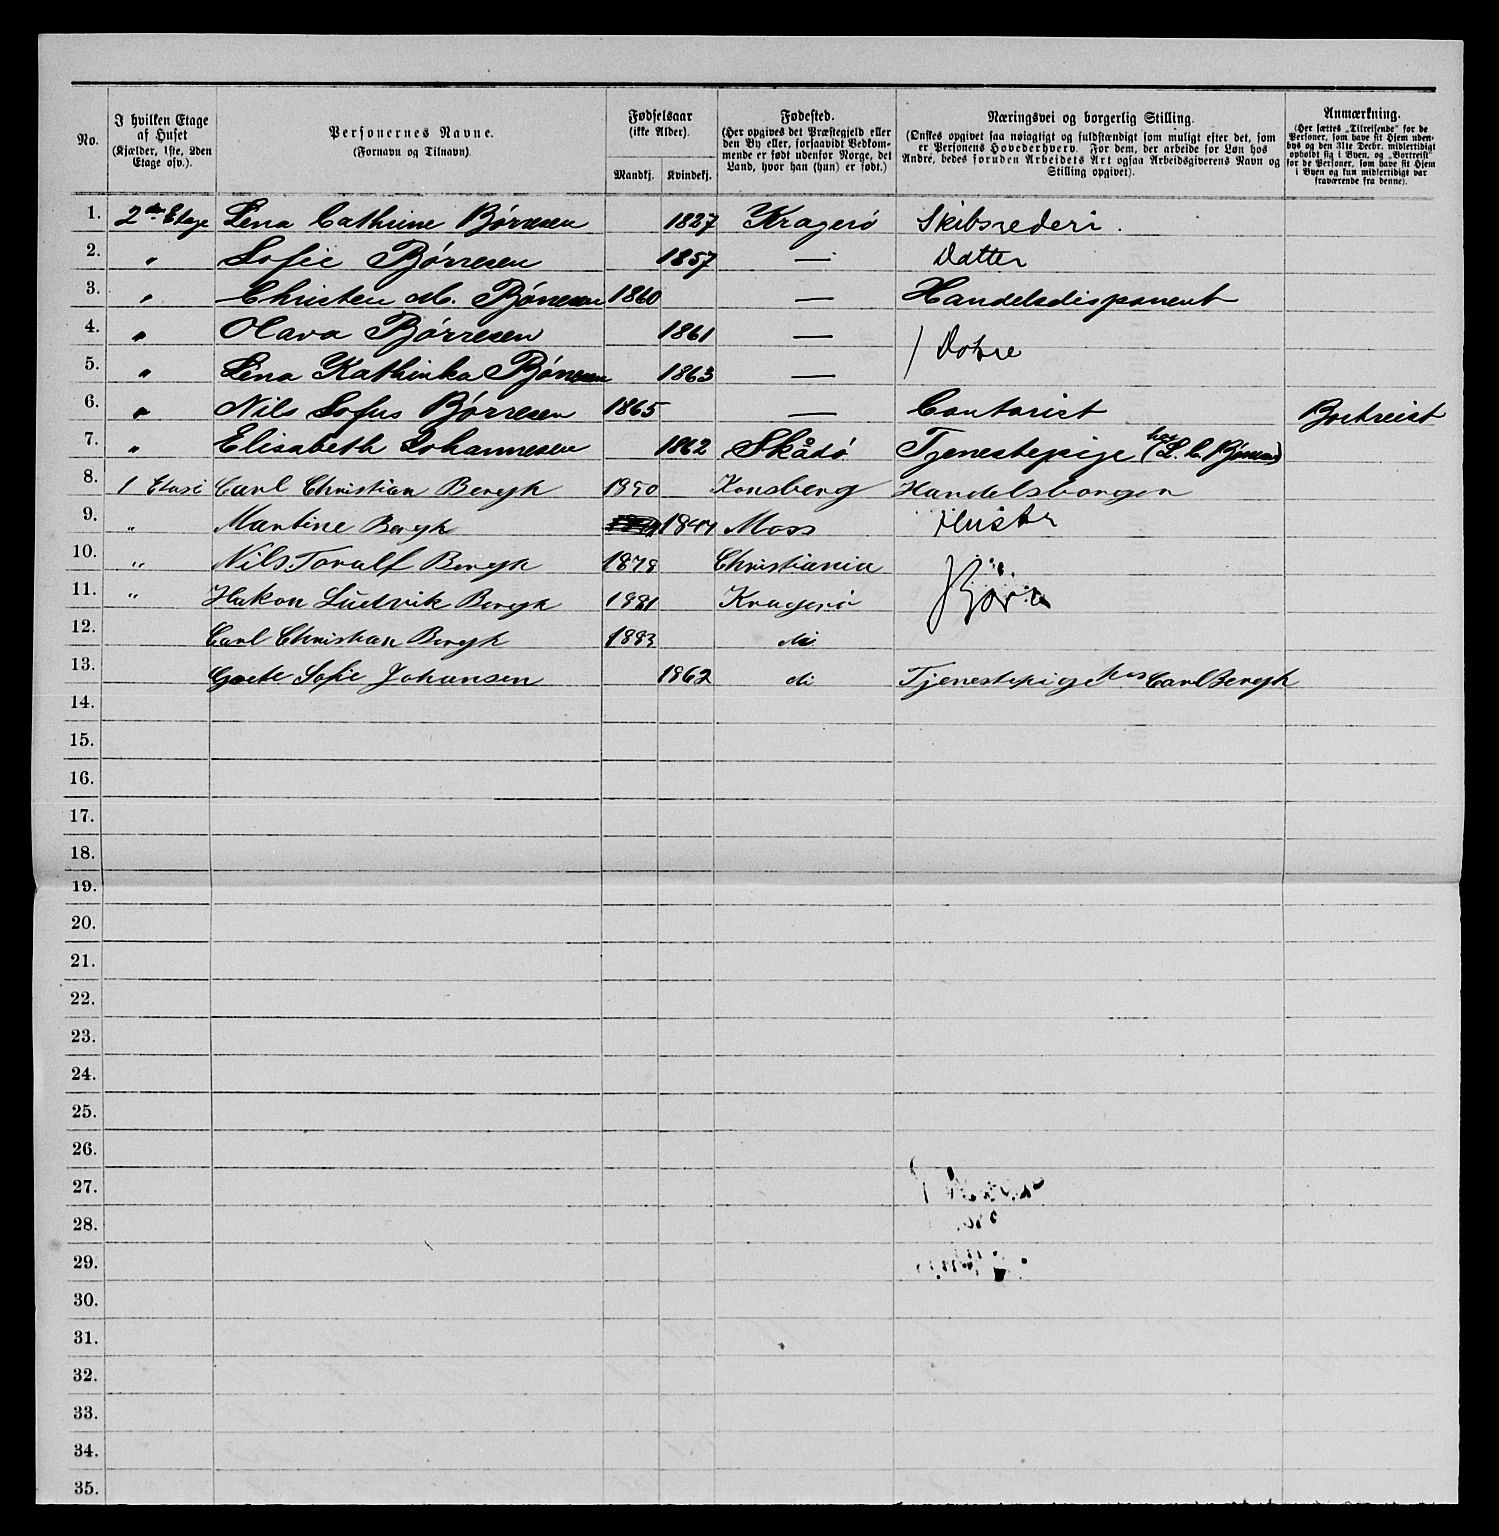 No.
I hvilken Etage af Huset (Kjælder, 1ste, 2den Etage osv.).
Personernes Navne. (Fornavn og Tilnavn)
Fødselsaar (ikke Alder).
Mandkj. Kvindekj.
Fødested. (Her opgives det Præstegjeld eller den By eller, forsaavidt Vedkommende er født udenfor Norge, det Land, hvor han (hun) er født.)
Næringsvei og borgerlig Stilling. (Ønskes opgivet saa nøiagtigt og fuldstændigt som muligt efter det, som er Personens Hovederhverv. For dem, der arbeide for Løn hos Andre, bedes foruden Arbeidets Art ogsaa Arbeidsgiverens Navn og Stilling opgivet).
Anmærkning. (Her sættes „Tilreisende“ for de Personer, som have sit Hjem udenbys og den 31te Decbr. midlertidigt opholdt sig i Byen, og „Bortreist“ for de Personer, som have sit Hjem i Byen og kun midlertidigt var fraværende fra denne).
1. 2den Etage Lena Cathrine Børresen 1827 Kragerö Skibsrederi.
2. " Sofie Børresen 1857 — Datter
3. " Christen M. Børresen 1860 — Handelsdisponent
4. " Olava Børresen 1861 —
5. " Lena Kathinka Børresen 1863 —
6. " Nils Sofus Børresen 1865 — Contorist Bortreist
7. " Elisabeth Johannesen 1862 Skåtö Tjenestepige (hos L. C. Børresen)
8. 1 Etage Carl Christian Bergh 1850 Konsberg Handelsborger
9. " Martine Bergh Moss Hustr
10. " Nils Toralf Bergh 1878 Christiania
11. " Hakon Ludvik Bergh 1881 Kragerö Börn
12. Carl Christian Bergh 1883 di
13. Grete Sofie Johansen 1862 di Tjenestepige hos Carl Bergh
14.
15.
16.
17.
18.
19.
20.
21.
22.
23.
24.
25.
26.
27.
28.
29.
30.
31.
32.
33.
34.
35.